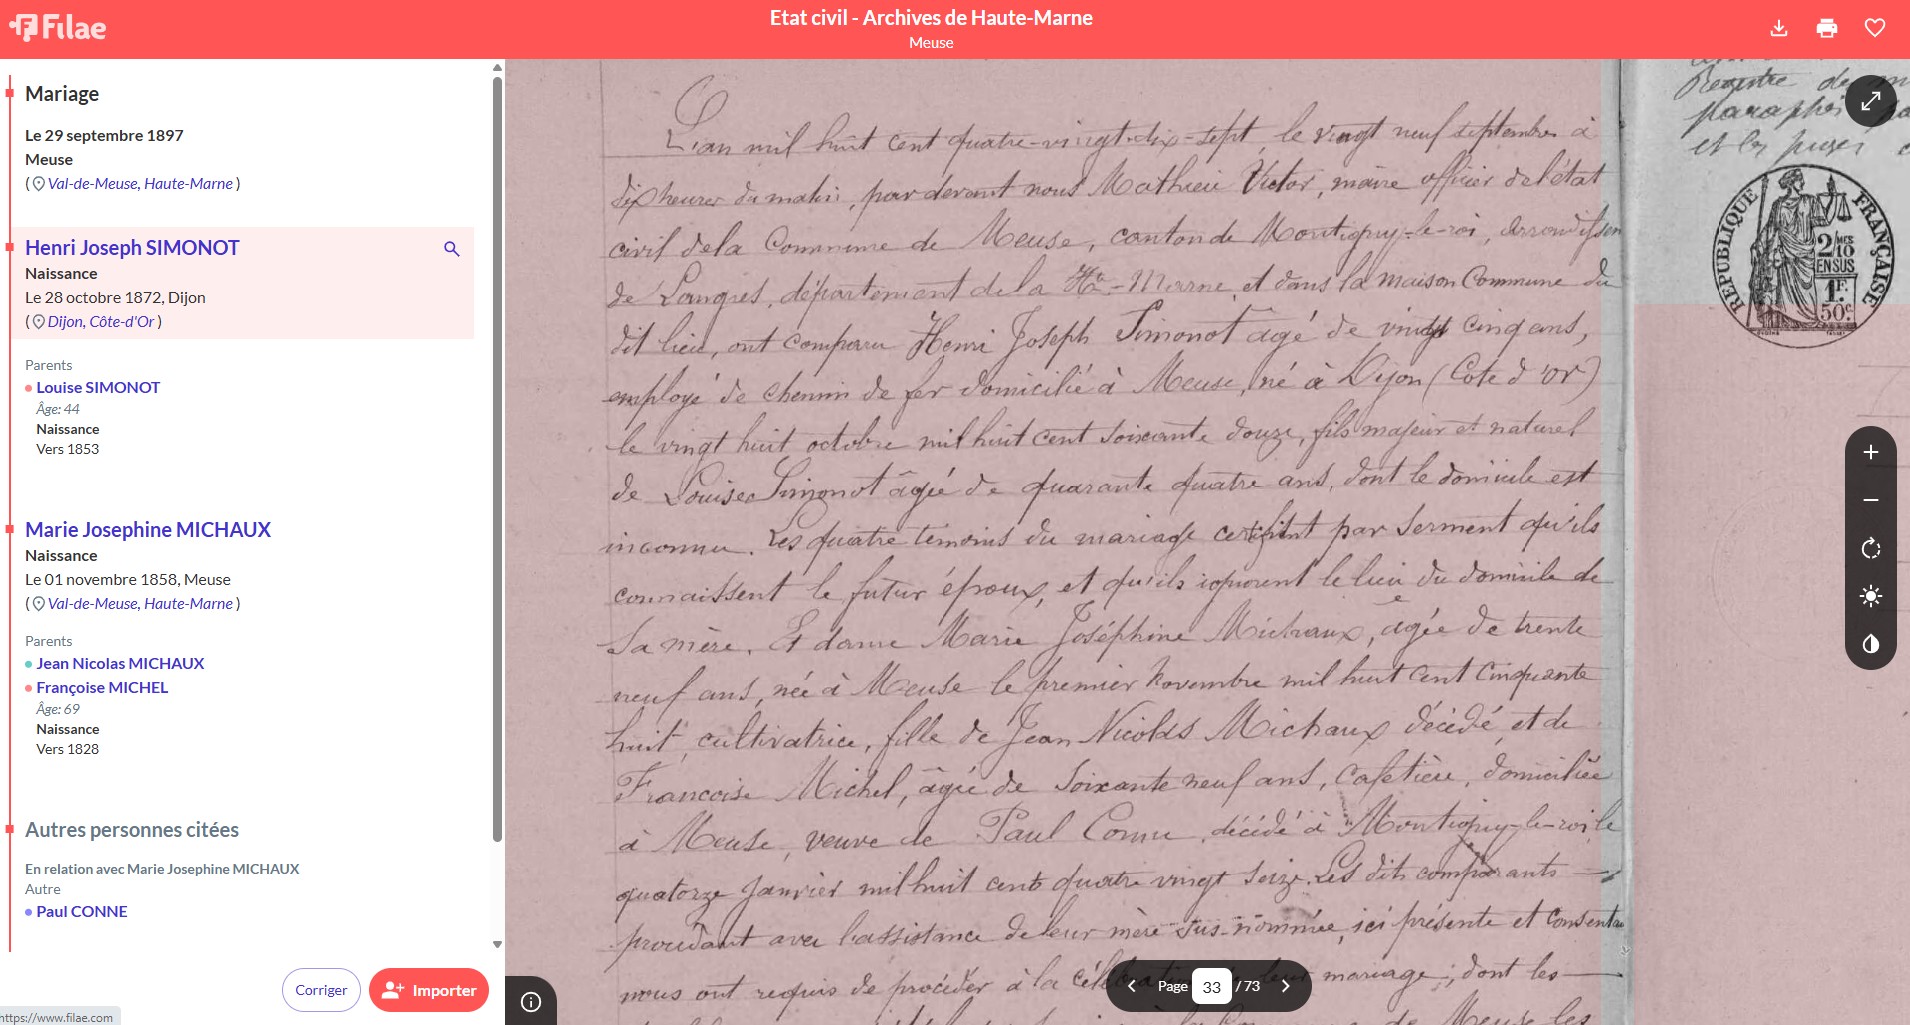 Filae
Etat civil - Archives de Haute-Marne
Meuse
Mariage
Le 29 septembre 1897
Meuse
( Val-de-Meuse, Haute-Marne )
Henri Joseph SIMONOT
Naissance
Le 28 octobre 1872, Dijon
( Dijon, Côte-d'Or )
Parents
Louise SIMONOT
Âge: 44
Naissance
Vers 1853
Marie Josephine MICHAUX
Naissance
Le 01 novembre 1858, Meuse
( Val-de-Meuse, Haute-Marne )
Parents
Jean Nicolas MICHAUX
Françoise MICHEL
Âge: 69
Naissance
Vers 1828
Autres personnes citées
En relation avec Marie Josephine MICHAUX
Autre
Paul CONNE
Corriger
Importer
https://www.filae.com
L'an mil huit cent quatre-vingt-dix-sept, le vingt neuf septembre à
dix heures du matin, par devant nous Mathieu Victor, maire officier de l'état
civil de la Commune de Meuse, canton de Montigny-le-roi, arrondissem
de Langres, département de la Hte-Marne, et dans la maison Commune du
dit lieu, ont comparu Henri Joseph Simonot âgé de vingt cinq ans,
employé de chemin de fer domicilié à Meuse, né à Dijon (Cote d'or)
le vingt huit octobre mil huit cent soixante douze, fils majeur et naturel
de Louise Simonot âgée de quarante quatre ans, dont le domicile est
inconnu. Les quatre témoins du mariage certifient par serment qu'ils
connaissent le futur époux, et qu'ils ignorent le lieu du domicile de
sa mère. Et dame Marie Joséphine Michaux, agée de trente
neuf ans, née à Meuse le premier Novembre mil huit cent cinquante
huit, cultivatrice, fille de Jean Nicolas Michaux décédé, et de
Francoise Michel, âgée de soixante neuf ans, cafetière, domiciliée
à Meuse, veuve de Paul Conne, décédé à Montigny-le-roi, le
quatorze Janvier mil huit cent quatre vingt seize. Les dits comparants
procédant avec l'assistance de leur mère sus-nommée, ici présente et consentan
nous ont requis de procéder à la leur mariage; dont les
Commune de Meuse les
Registre de
paraphé
et les
RÉPUBLIQUE FRANÇAISE
2/MES
10
EN SUS
1F.
50c.
Page 33 / 73